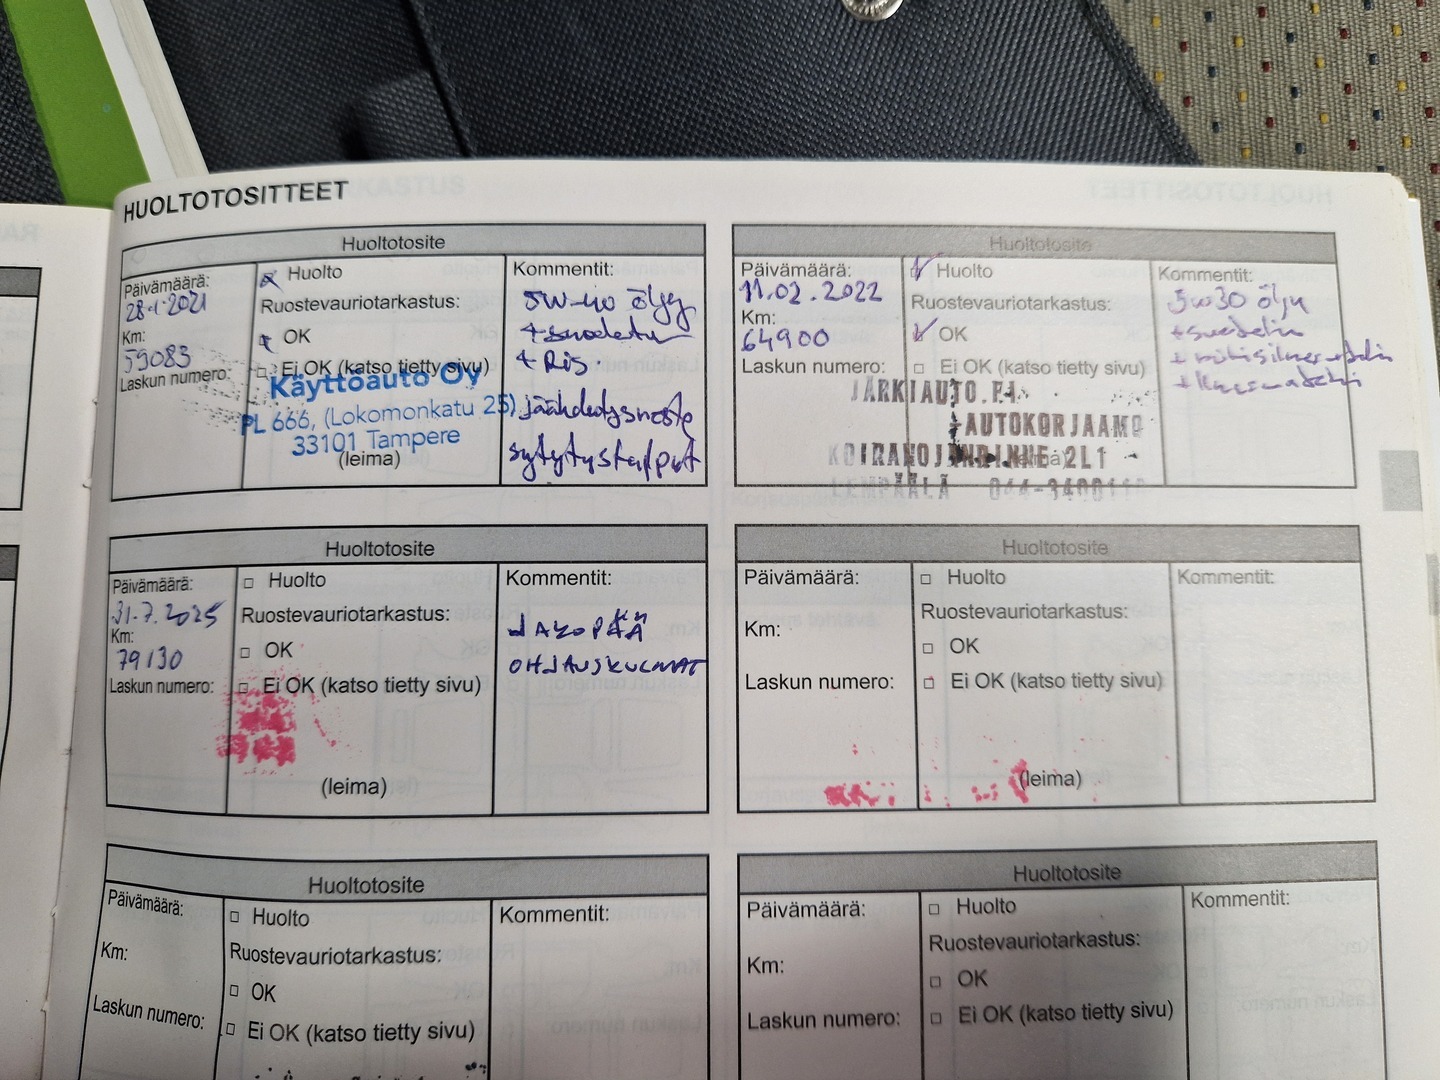 HUOLTOTOSITTEET
Huoltotosite
Päivämäärä:
28.1.2021
Km:
59083
Laskun numero:
x Huolto
Ruostevauriotarkastus:
x OK
Ei OK (katso tietty sivu)
Käyttöauto Oy
PL 666, (Lokomonkatu 25)
33101 Tampere
(leima)
Kommentit:
5W-40 öljy
+ suodatin
+ Ris
jäähdytysneste
sytytystulpat
Huoltotosite
Päivämäärä:
11.02.2022
Km:
64900
Laskun numero:
Huolto
Ruostevauriotarkastus:
OK
Ei OK (katso tietty sivu)
JÄRKIAUTO.
AUTOKORJAAMO
KOIRANOJANRINNE 2L1
LEMPÄÄLÄ
Kommentit:
5w30 öljy
+ suodatin
Huoltotosite
Päivämäärä:
31.7.2025
Km:
79130
Laskun numero:
Huolto
Ruostevauriotarkastus:
OK
Ei OK (katso tietty sivu)
(leima)
Kommentit:
JAKOPÄÄ
OHJAUSKULMAT
Huoltotosite
Päivämäärä:
Km:
Laskun numero:
Huolto
Ruostevauriotarkastus:
OK
Ei OK (katso tietty sivu)
(leima)
Kommentit:
Huoltotosite
Päivämäärä:
Km:
Laskun numero:
Huolto
Ruostevauriotarkastus:
OK
Ei OK (katso tietty sivu)
Kommentit:
Huoltotosite
Päivämäärä:
Km:
Laskun numero:
Huolto
Ruostevauriotarkastus:
OK
Ei OK (katso tietty sivu)
Kommentit: